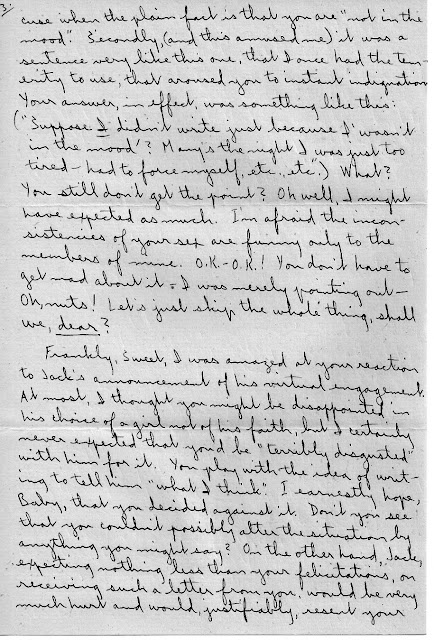 3.
cuse when the plain fact is that you are "not in the
mood". Secondly, (and this amused me) it was a
sentence very like this one, that I once had the tem-
erity to use, that aroused you to instant indignation
Your answer, in effect, was something like this:
("Suppose I didn't write just because I 'wasn't
in the mood'? Many's the night I was just too
tired — had to force myself, etc., etc.") What?
You still don't get the point? Oh well, I might
have expected as much. I'm afraid the incon-
sistencies of your sex are funny only to the
members of mine. O.K. - O.K.! You don't have to
get mad about it - I was merely pointing out —
Oh, nuts! Let's just skip the whole thing, shall
we, dear?
Frankly, Sweet, I was amazed at your reaction
to Jack's announcement of his virtual engagement.
At most, I thought you might be disappointed in
his choice of a girl not of his faith, but I certainly
never expected that you'd be "terribly disgusted"
with him for it. You play with the idea of writ-
ing to tell him "what I think". I earnestly hope,
Baby, that you decided against it. Don't you see
that you couldn't possibly alter the situation by
anything you might say? On the other hand, Jack,
expecting nothing less than your felicitations, on
receiving such a letter from you, would be very
much hurt and would, justifiably, resent your